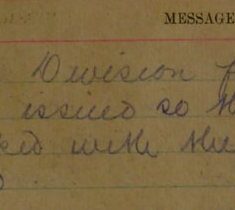 MESSAGE
Division f
issued so th
ked with the